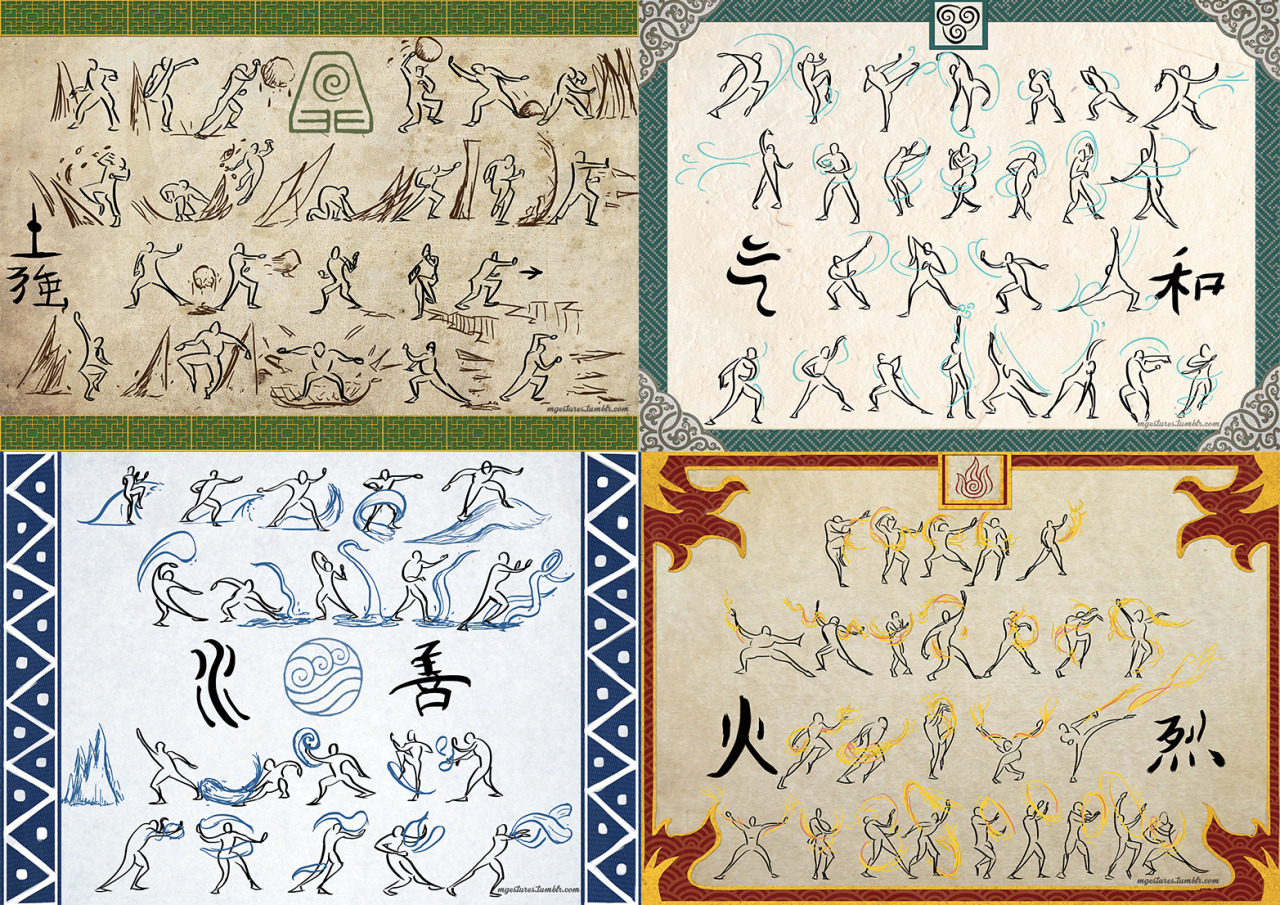 土
強
mgestures.tumblr.com
气
和
mgestures.tumblr.com
水
善
mgestures.tumblr.com
火
烈
mgestures.tumblr.com